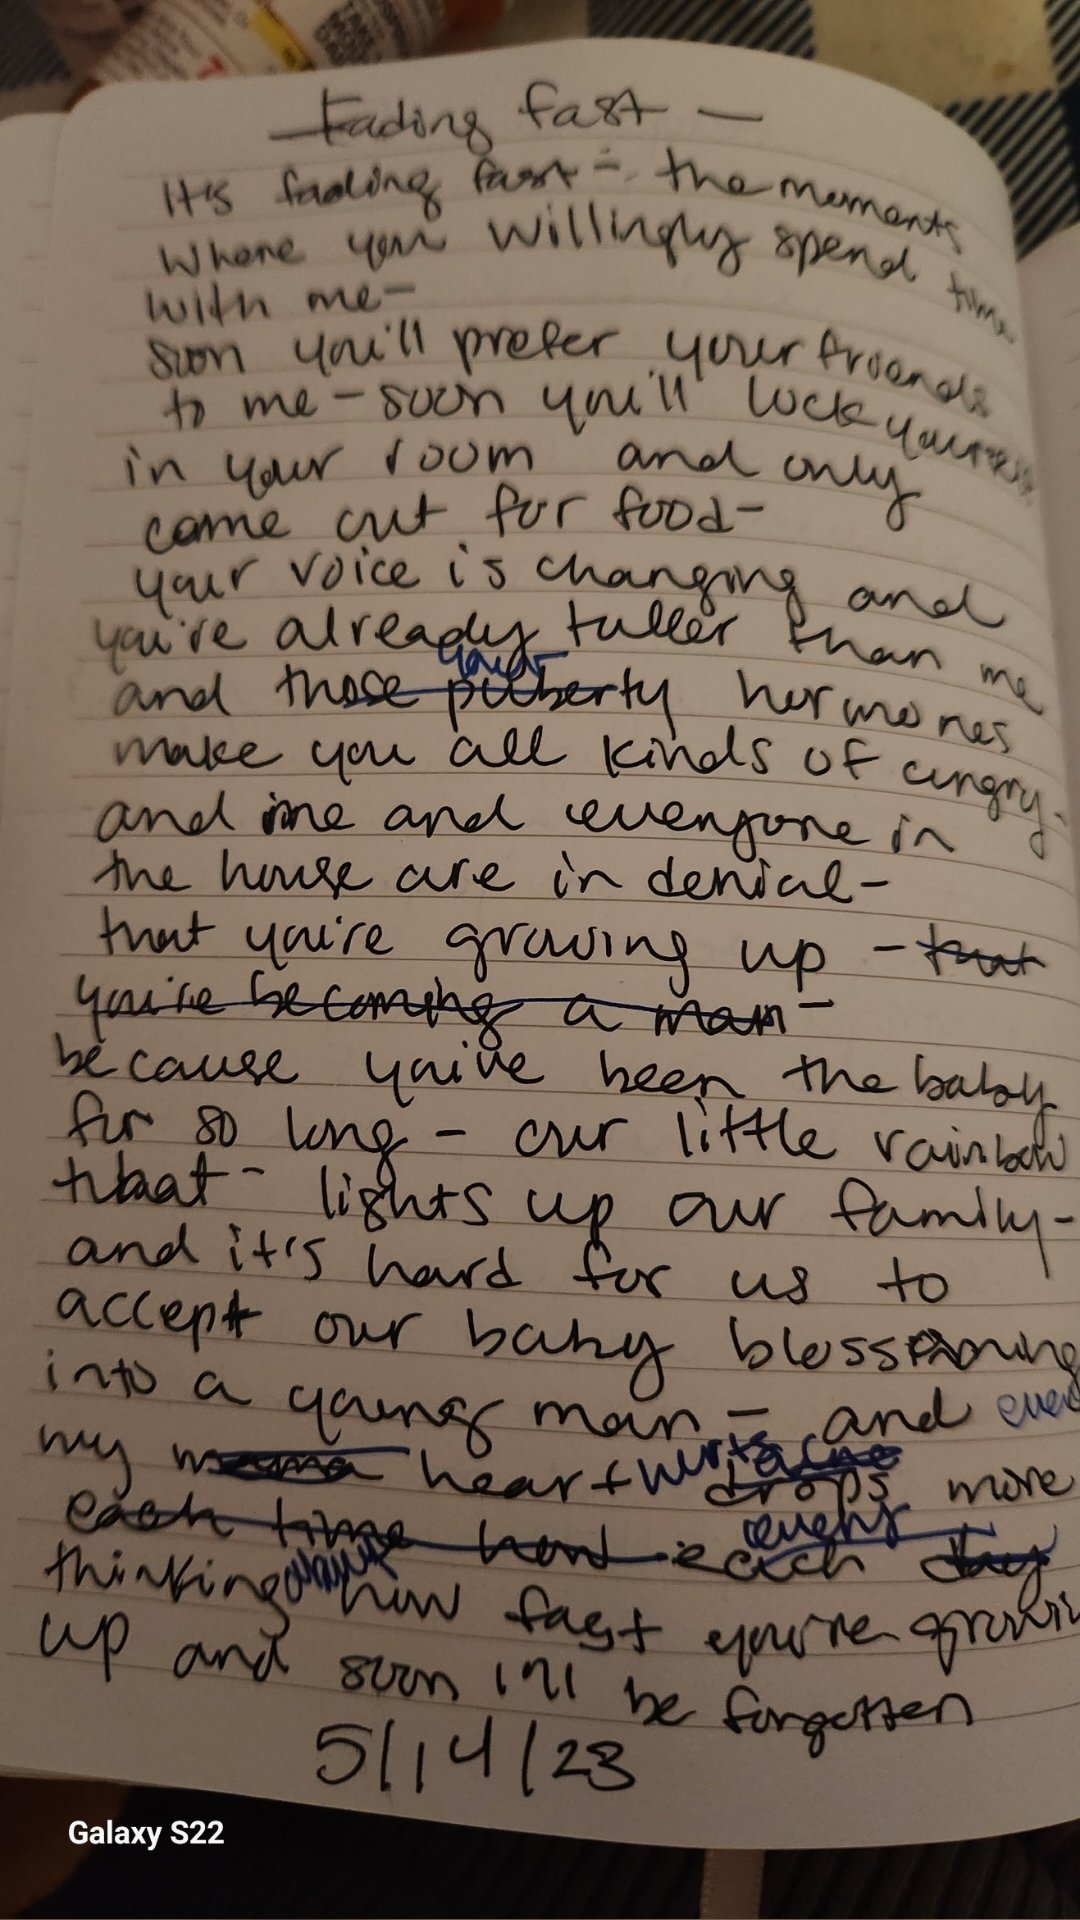 — Fading fast —
It's fading fast - the moments
Where you willingly spend time
with me-
soon you'll prefer your friends
to me - soon you'll lock yourself
in your room and only
come out for food-
your voice is changing and
you're already taller than me
your
and those puberty hormones
make you all kinds of angry-
and me and everyone in
the house are in denial-
that you're growing up - that
you're becoming a man -
because you've been the baby
for so long - our little rainbow
that - lights up our family-
and it's hard for us to
accept our baby blossoming
into a young man - and
my mama heart hurts drops more
each time each day
thinking about how fast you're
up and soon I'll be forgotten
5/14/23
Galaxy S22